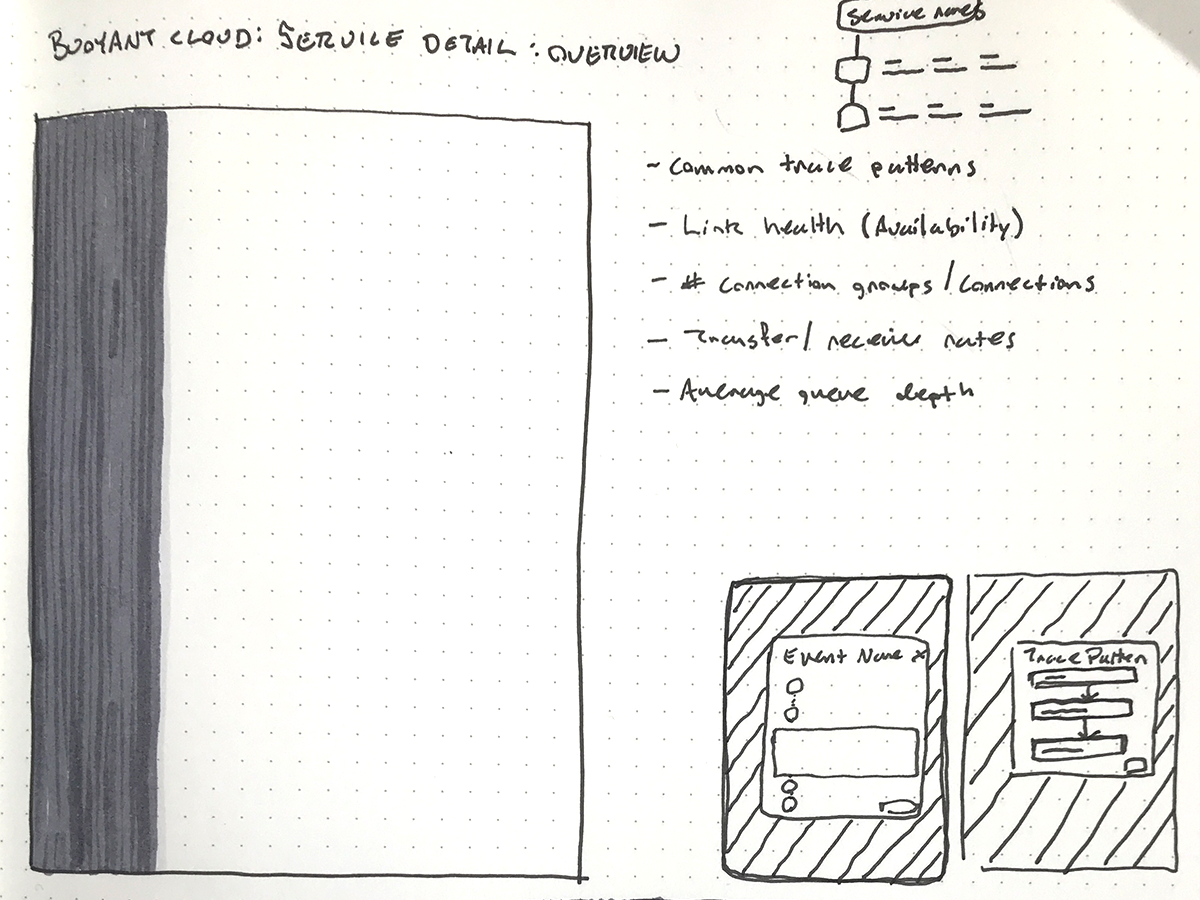 BUOYANT CLOUD: SERVICE DETAIL: OVERVIEW
Service names
- Common trace patterns
- Link health (Availability)
- # connection groups / connections
- Transfer / receive rates
- Average queue depth
Event Name x
Trace Pattern